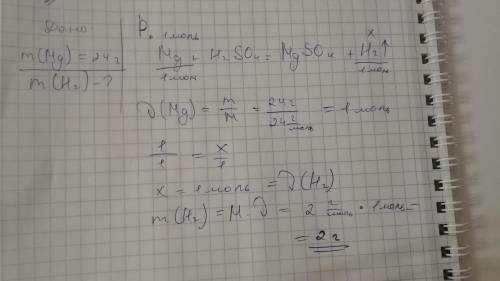 Дано
m(Mg) = 24 г
m(H₂) - ?
P.
1 моль x
Mg + H₂SO₄ = MgSO₄ + H₂↑
1 моль 1 моль
ν(Mg) = m/M = 24 г / 24 г/моль = 1 моль
1/1 = x/1
x = 1 моль = ν(H₂)
m(H₂) = M · ν = 2 г/моль · 1 моль =
= 2 г